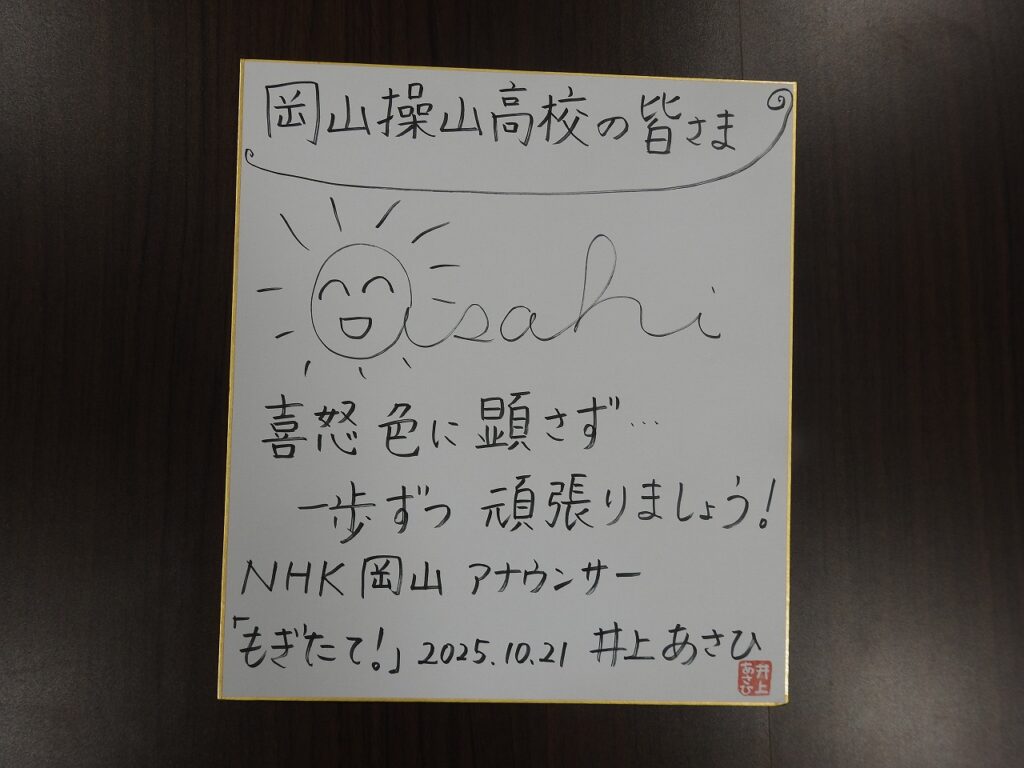 岡山操山高校の皆さま
asahi
喜怒色に顕さず…
一歩ずつ 頑張りましょう!
NHK岡山 アナウンサー
「もぎたて!」2025.10.21 井上あさひ
井上あさひ